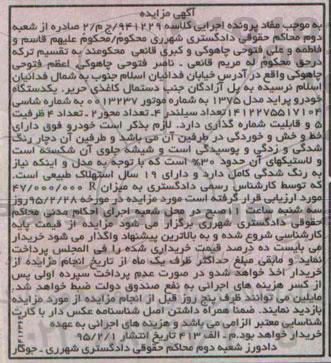 آگهی مزایده
به موجب مفاد پرونده اجرایی کلاسه ۹۴۱۲۲۹/ج م/۲ صادره از شعبه
دوم محاکم حقوقی دادگستری شهرری محکوم/محکوم علیهم قاسم و
فاطمه و علی فتوحی چاهوکی و کبری قانعی محکومند به تقسیم ترکه
درحق محکوم له مریم قانعی . ناصر فتوحی چاهوکی . اعظم فتوحی
چاهوکی واقع در آدرس خیابان فدائیان اسلام جنوب به شمال فدائیان
اسلام نرسیده به پل آزادگان جنب دستمال کاغذی حریر. یکدستگاه
خودرو پراید مدل ۱۳۷۵ به شماره موتور ۰۰۱۳۲۳۷ به شماره شاسی
۱۴۱۲۲۷۵۵۱۷۱۰۳ تعداد سیلندر ۴. تعداد محور ۲. تعداد ۴ ظرفیت
۵ و قابلیت شماره گذاری دارد. لازم بذکر است خودرو فوق دارای
خط و خش و خوردگی در طرفین آن می باشد و طرفین آن دچار رنگ
شدگی و زدگی و پوسیدگی است و شیشه جلوی آن شکسته است
و لاستیکهای آن حدود ۳۰% است که با توجه به مدل و اینکه نیاز
به رنگ شدگی کامل دارد و دارای ۱۹ سال استهلاک طبیعی است.
که توسط کارشناس رسمی دادگستری به میزان ۴۷/۰۰۰/۰۰۰ R
مورد ارزیابی قرار گرفته است مورد مزایده در مورخه ۹۵/۲/۲۸روز
سه شنبه ساعت ۱۱صبح در محل شعبه اجرای احکام مدنی محاکم
حقوقی دادگستری شهرری برگزار می شود مزایده از قیمت پایه
کارشناسی شده شروع و به بالاترین پیشنهاد واگذار می شود خریدار
می بایست ده درصد قیمت خریداری شده را فی المجلس پرداخت
نماید. و مابقی مبلغ حداکثر ظرف یک ماه از تاریخ انجام مزایده از
خریدار اخذ خواهد شد و در صورت عدم پرداخت سپرده اولی پس
از کسر هزینه های اجرایی به نفع صندوق دولت ضبط خواهد شد.
مایلین می توانند ظرف پنج روز قبل از انجام مزایده از مورد مزایده
بازدید نمایند. ضمنا همراه داشتن اصل شناسنامه عکس دار یا کارت
شناسایی معتبر الزامی می باشد و هزینه های اجرایی به عهده
خریدار خواهد بود.م . الف ۴۱۳ تاریخ انتشار ۹۵/۲/۱
دادورز شعبه دوم محاکم حقوقی دادگستری شهرری . جوکار